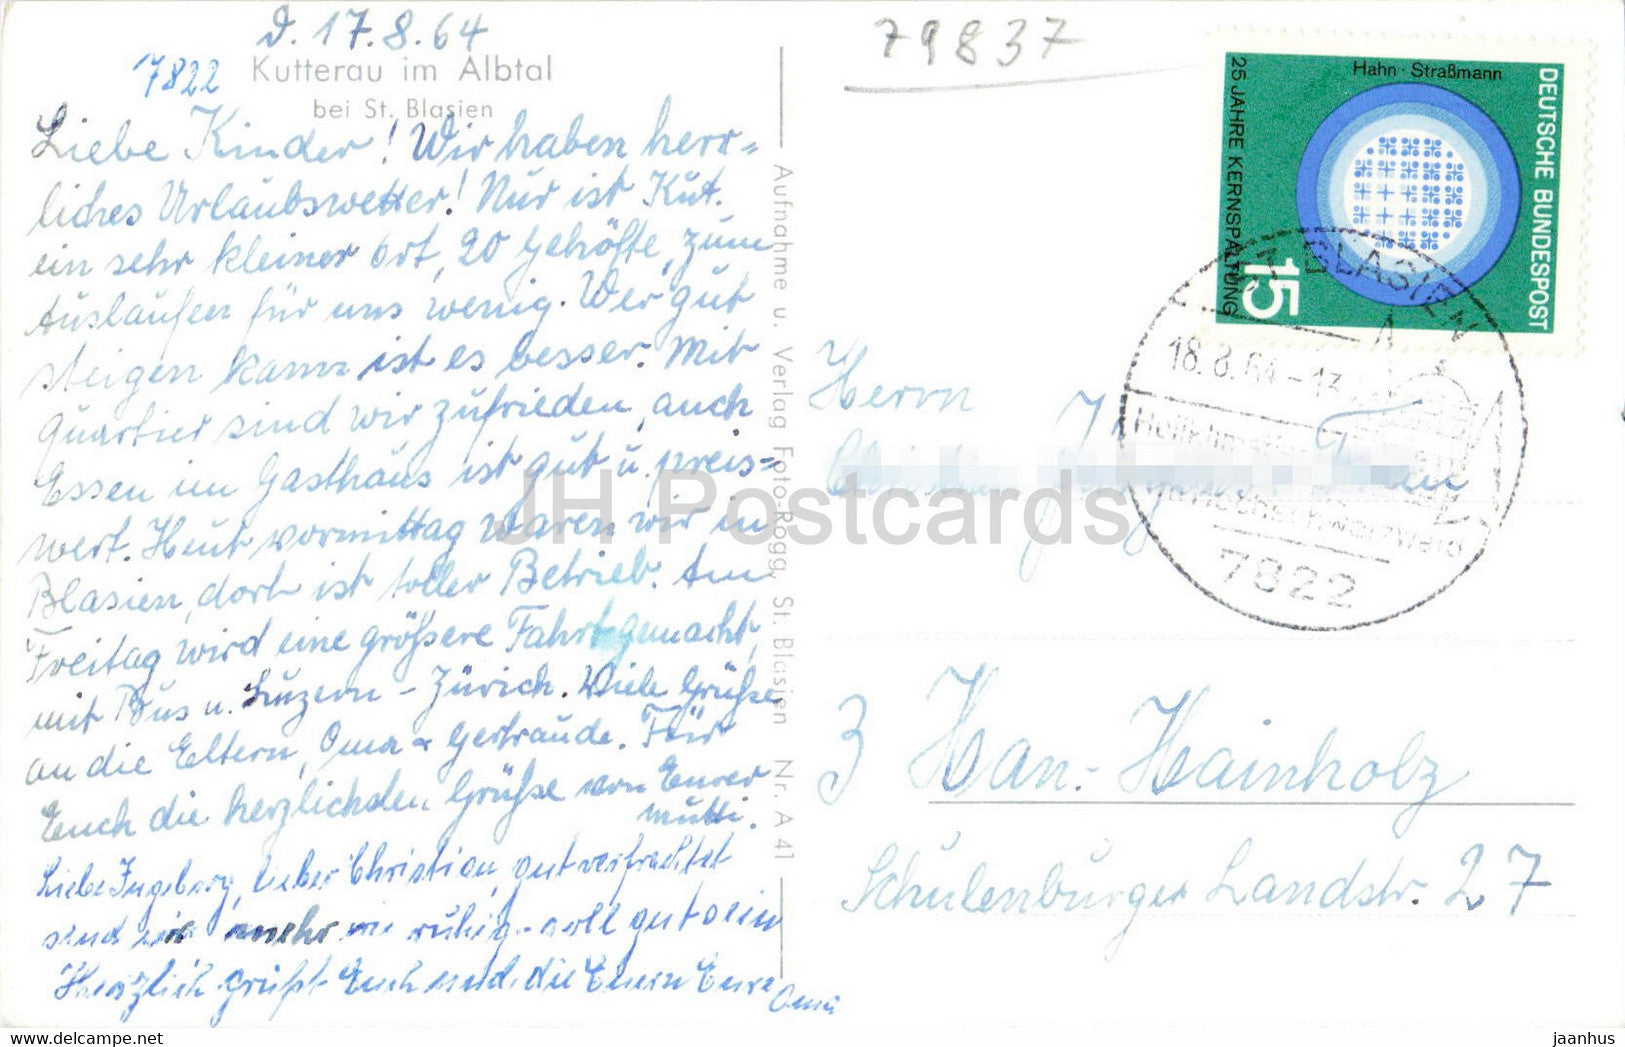 d. 17.8.64
7822 Kutterau im Albtal
bei St. Blasien
Liebe Kinder! Wir haben herr=
liches Urlaubswetter! Nur ist Kut.
ein sehr kleiner Ort, 20 Gehöfte, zum
Auslaufen für uns wenig. Wer gut
steigen kann ist es besser. Mit
Quartier sind wir zufrieden, auch
Essen im Gasthaus ist gut u. preis=
wert. Heut vormittag waren wir in
Blasien, dort ist toller Betrieb. Am
Freitag wird eine größere Fahrt gemacht,
mit Bus u. Luzern - Zürich. Viele Grüße
an die Eltern, Oma u. Gertraude. Für
Euch die herzlichsten Grüße von Eurer
Mutti.
Liebe Ingeborg, lieber Christian, gut verfrachtet
sind wir
ruhig soll gut sein
Herzlich grüßt Euch und die Eltern Eure
Oma
Aufnahme u. Verlag Foto-Rogg, St. Blasien Nr. A 41
79837
Hahn · Straßmann
25 JAHRE KERNSPALTUNG
DEUTSCHE BUNDESPOST
15
ST. BLASIEN
18.8.64-13
7822
Herrn
3 Han.-Hainholz
Schulenburger Landstr. 27
JH Postcards
jaanhus
www.delcampe.net